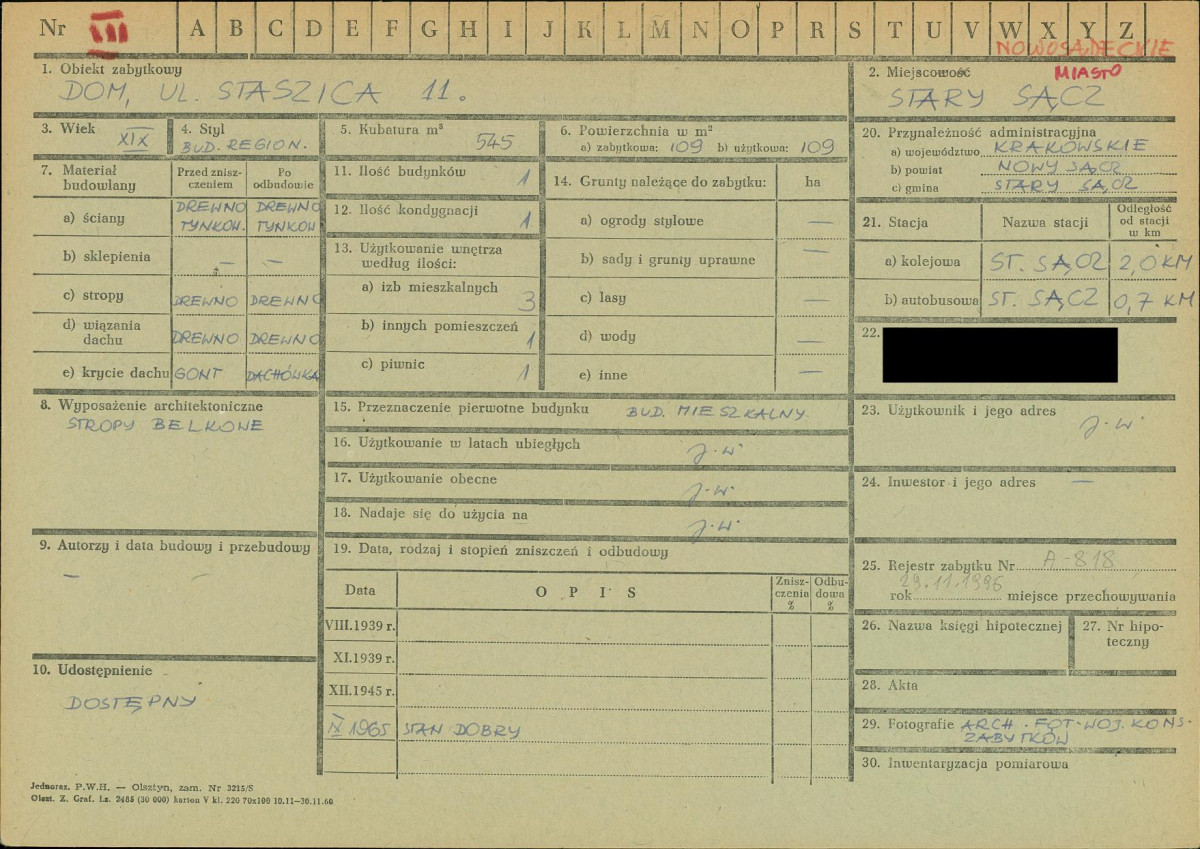 Nr VII A B C D E F G H I J K L M N O P R S T U V W X Y Z
NOWOSĄDECKIE
MIASTO
1. Obiekt zabytkowy
DOM, UL. STASZICA 11.
2. Miejscowość
STARY SĄCZ
3. Wiek XIX
4. Styl
BUD. REGION.
5. Kubatura m³ 545
6. Powierzchnia w m²
a) zabytkowa: 109 b) użytkowa: 109
7. Materiał budowlany
Przed zniszczeniem
Po odbudowie
a) ściany DREWNO TYNKOW. DREWNO TYNKOW
b) sklepienia — —
c) stropy DREWNO DREWNO
d) wiązania dachu DREWNO DREWNO
e) krycie dachu GONT DACHÓWKA
8. Wyposażenie architektoniczne
STROPY BELKOWE
9. Autorzy i data budowy i przebudowy
— —
10. Udostępnienie
DOSTĘPNY
11. Ilość budynków 1
12. Ilość kondygnacji 1
13. Użytkowanie wnętrza
według ilości:
a) izb mieszkalnych 3
b) innych pomieszczeń 1
c) piwnic 1
14. Grunty należące do zabytku: ha
a) ogrody stylowe —
b) sady i grunty uprawne —
c) lasy —
d) wody —
e) inne —
15. Przeznaczenie pierwotne budynku BUD. MIESZKALNY.
16. Użytkowanie w latach ubiegłych j.w.
17. Użytkowanie obecne j.w.
18. Nadaje się do użycia na j.w.
19. Data, rodzaj i stopień zniszczeń i odbudowy
Data OPIS Zniszczenia % Odbudowa %
VIII.1939 r.
XI.1939 r.
XII.1945 r.
IX 1965 STAN DOBRY
20. Przynależność administracyjna
a) województwo KRAKOWSKIE
b) powiat NOWY SĄCZ
c) gmina STARY SĄCZ
21. Stacja Nazwa stacji Odległość od stacji w km
a) kolejowa ST. SĄCZ 2,0 KM
b) autobusowa ST. SĄCZ 0,7 KM
22.
23. Użytkownik i jego adres
j.w.
24. Inwestor i jego adres —
25. Rejestr zabytku Nr A-818
rok 29.11.1996 miejsce przechowywania
26. Nazwa księgi hipotecznej
27. Nr hipoteczny
28. Akta
29. Fotografie ARCH. FOT. WOJ. KONS.
ZABYTKÓW
30. Inwentaryzacja pomiarowa
Jednoraz. P.W.H. — Olsztyn, zam. Nr 3215/S
Olszt. Z. Graf. Lz. 2485 (30 000) karton V kl. 220 70x100 10.11—30.11.60